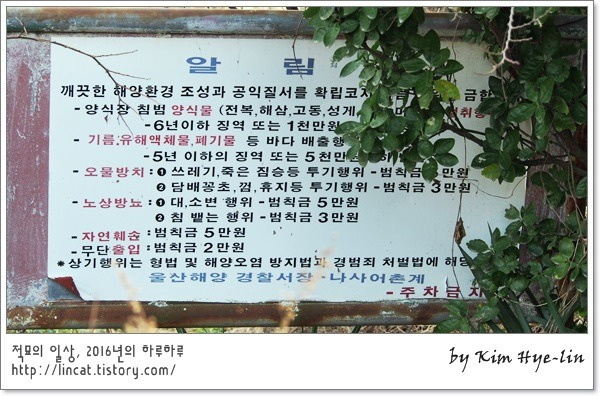 알 림
깨끗한 해양환경 조성과 공익질서를 확립코자 금
- 양식장 침범 양식물 (전복,해삼,고동,성게, 취
-6년이하 징역 또는 1천만원
- 기름,유해액체물,폐기물 등 바다 배출행
-5년 이하의 징역 또는 5천만
- 오물방치 : ❶ 쓰레기,죽은 짐승등 투기행위 - 범칙금 5만원
❷ 담배꽁초,껌,휴지등 투기행위 - 범칙금 3만원
- 노상방뇨 : ❶ 대,소변 행위 - 범칙금 5만원
❷ 침 뱉는 행위 - 범칙금 3만원
- 자연훼손 : 범칙금 5만원
- 무단출입 : 범칙금 2만원
*상기행위는 형법 및 해양오염 방지법과 경범죄 처벌법에 해당
울산해양 경찰서장·나사어촌계
- 주차금지
적묘의 일상, 2016년의 하루하루
http://lincat.tistory.com/
by Kim Hye-lin